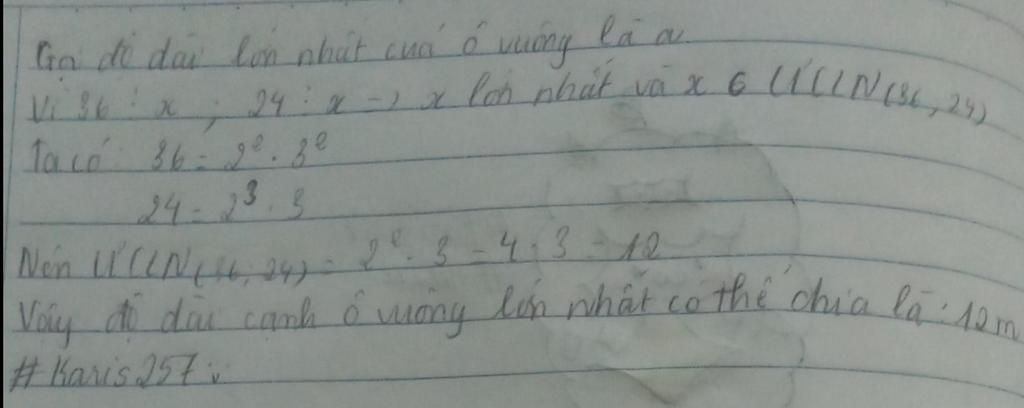 Gọi độ dài lớn nhất cuả ô vuông là a
Vì 36 ⋮ x ; 24 ⋮ x -> x lớn nhất và x ∈ ƯCLN(36, 24)
Ta có: 36 = 2² . 3²
24 = 2³ . 3
Nên ƯCLN(36, 24) = 2² . 3 = 4 . 3 = 12
Vậy độ dài cạnh ô vuông lớn nhất có thể chia là : 12m
#Karis257